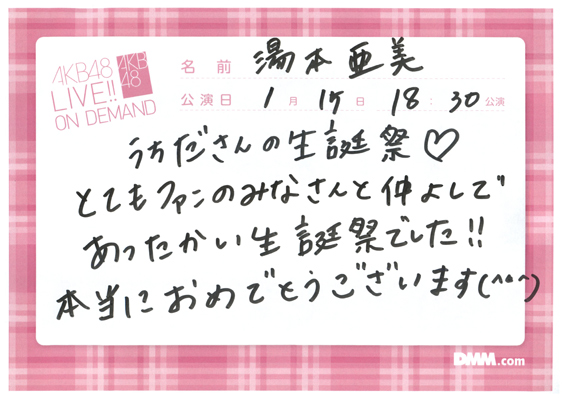 AKB48
LIVE!!
ON DEMAND
AKB
48
名 前 湯本亜美
公演日 1月15日 18:30公演
うちださんの生誕祭♡
とてもファンのみなさんと仲よしで
あったかい生誕祭でした!!
本当におめでとうございます(^^)
DMM.com